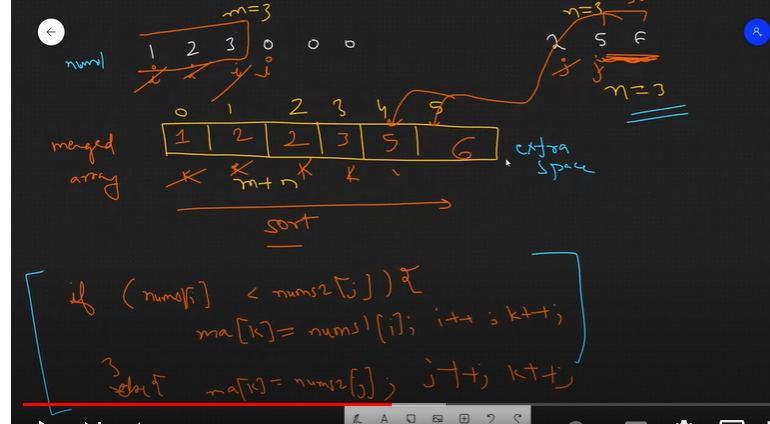 m=3 n=3
nums1 1 2 3 0 0 0 2 5 6
i i i j j j
n=3
0 1 2 3 4 5
merged array 1 2 2 3 5 6 extra space
k k k k
m+n
sort
if (nums[i] < nums2[j]) {
ma[k] = nums1[i]; i++; k++;
}
else{ ma[k] = nums2[j]; j++; k++;
A